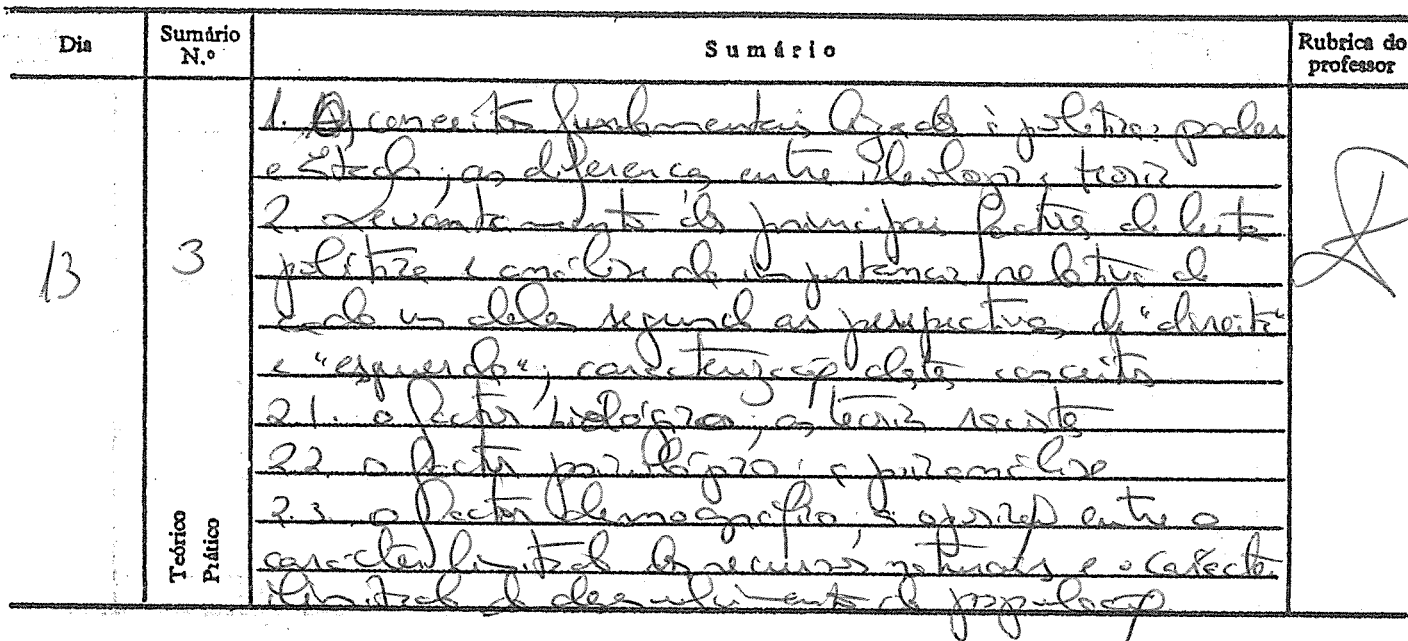 Dia
Sumário N.º
Sumário
Rubrica do professor
13
3
Teórico
Prático
1. Os conceitos fundamentais ligados à política: poder
e Estado; as diferenças entre ideologia e teoria
2. Levantamento dos principais factores de luta
política e análise da importância relativa de
cada um deles segundo as perspectivas de "direita"
e "esquerda"; caracterização destes conceitos
2.1. o factor biológico; as teorias racistas
2.2. o factor psicológico; a psicanálise
2.3. o factor demográfico; a oposição entre o
carácter limitado dos recursos naturais e o carácter
ilimitado do desenvolvimento da população